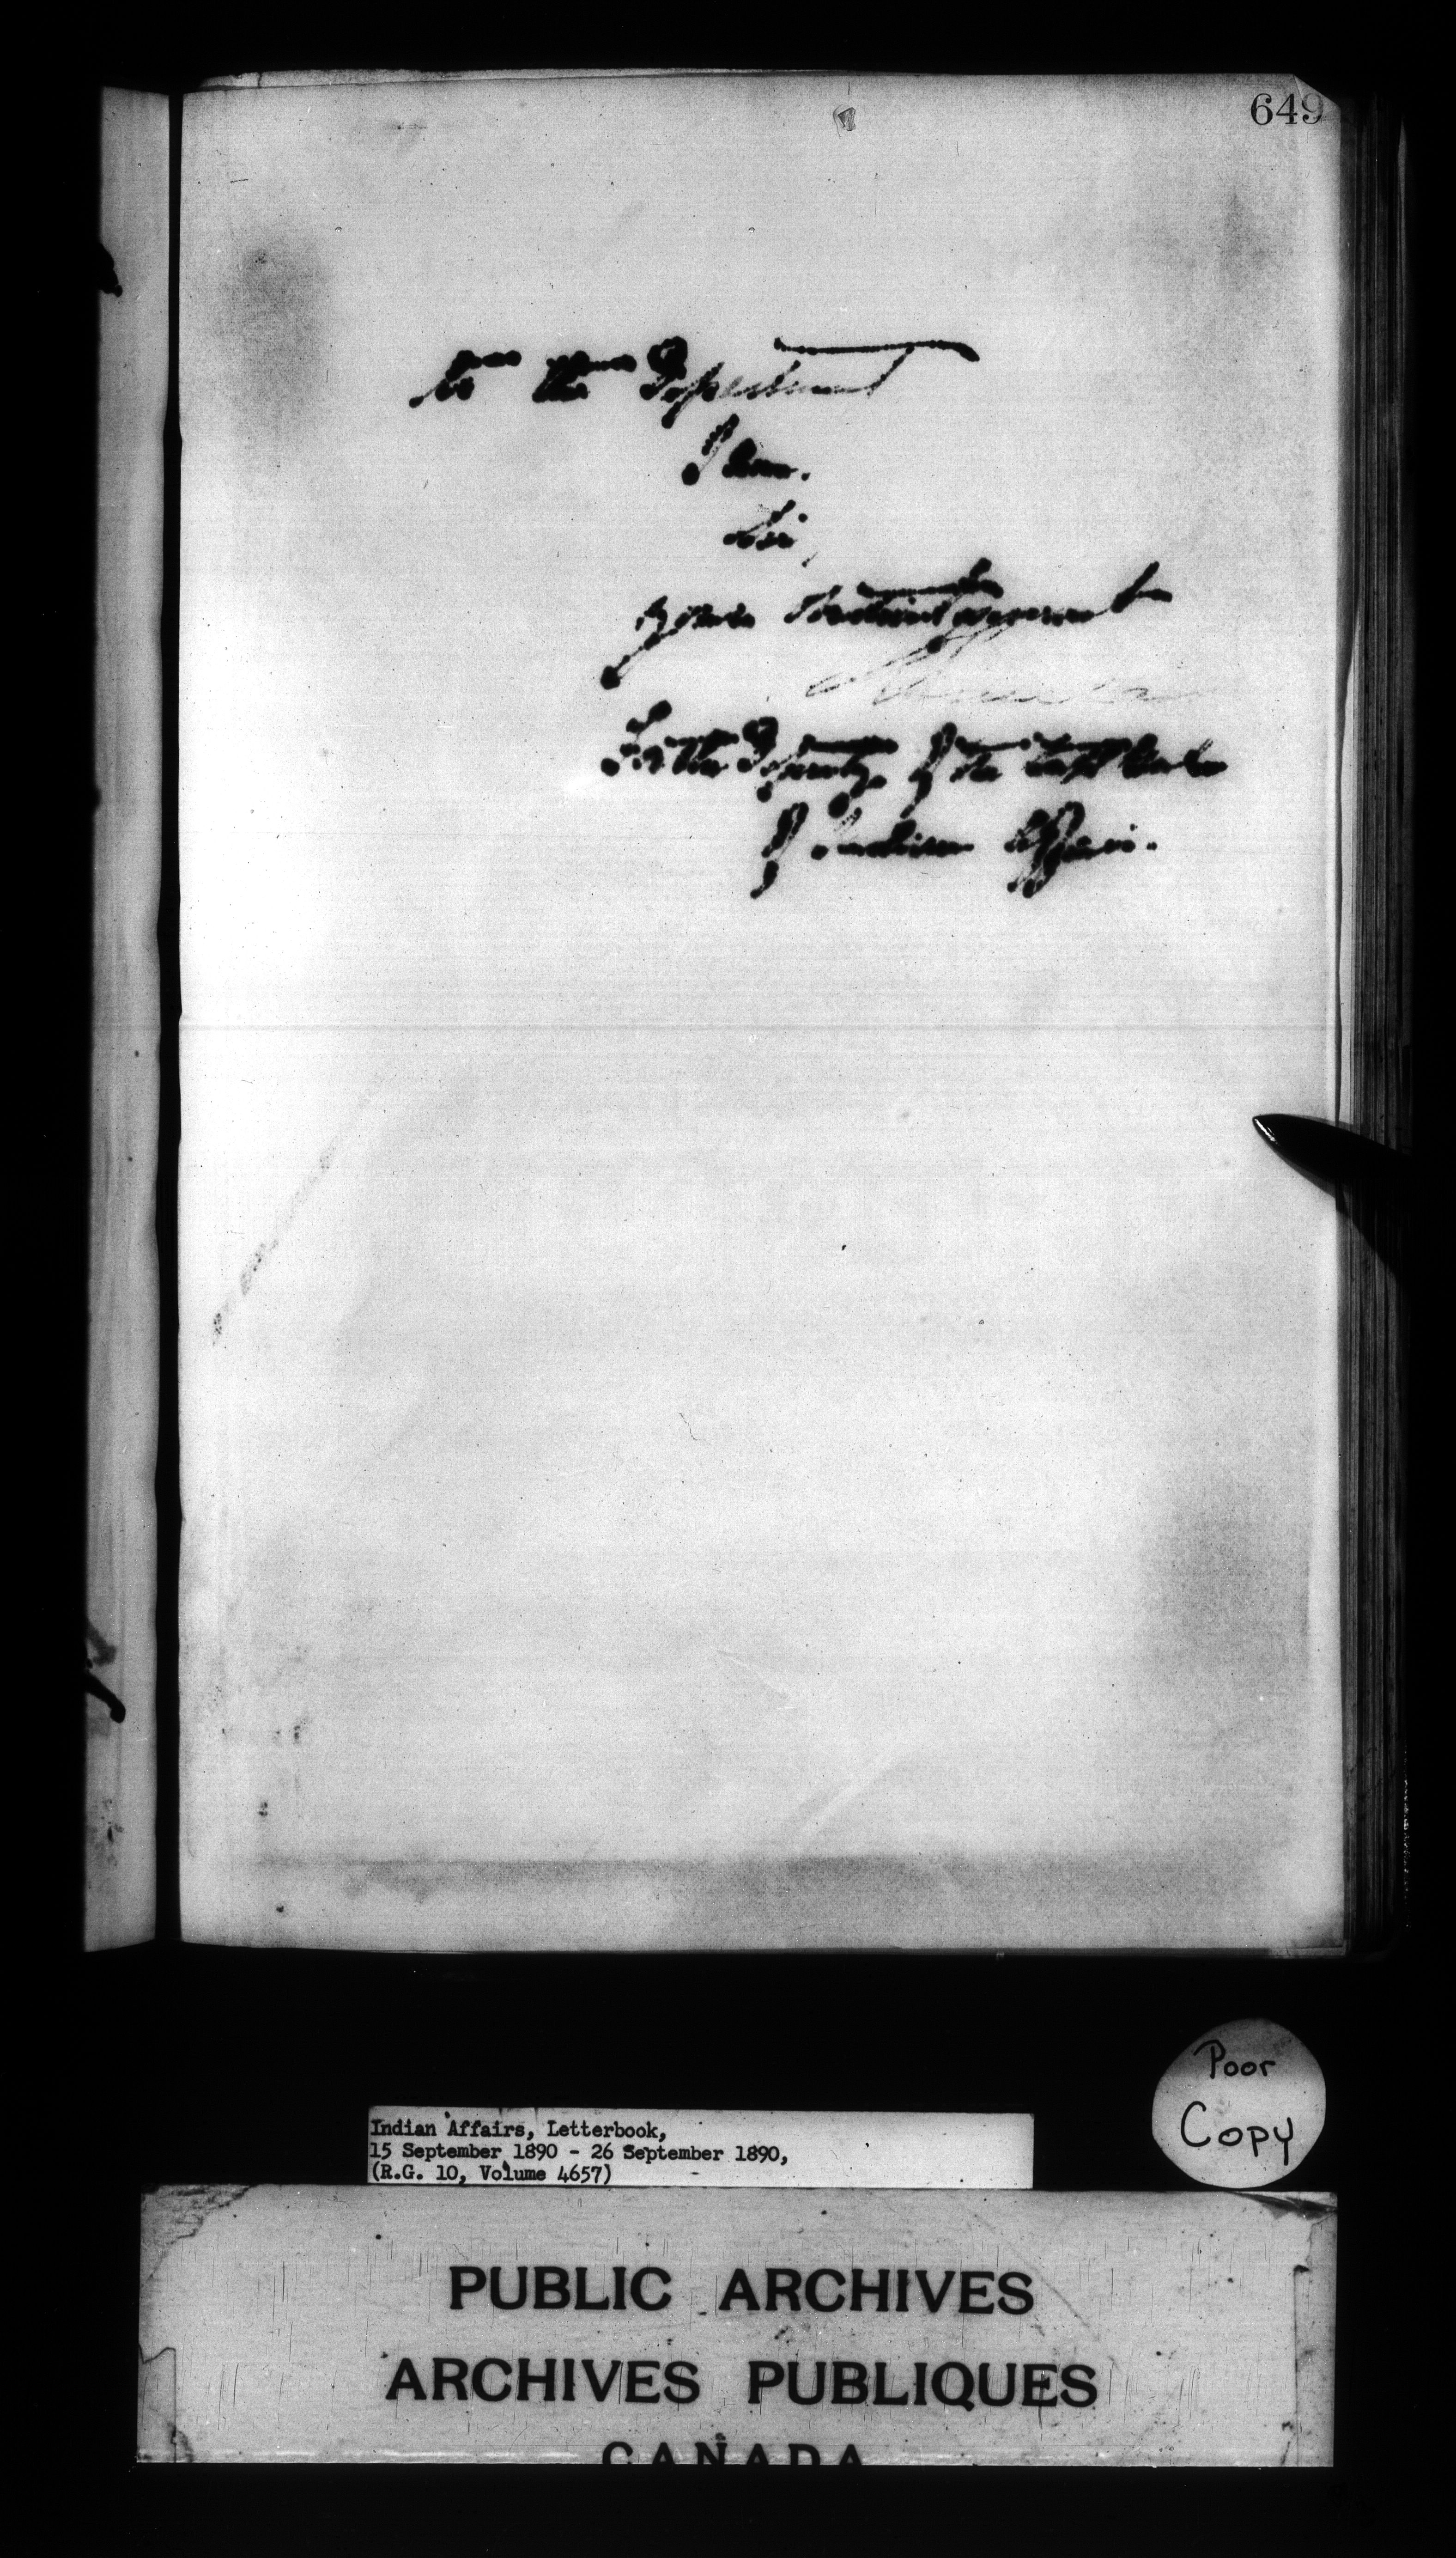 649
to the Department
I am.
Sir,
your obedient servant
For the Deputy of the Supt Genl
of Indian Affairs.
Poor
Copy
Indian Affairs, Letterbook,
15 September 1890 - 26 September 1890,
(R.G. 10, Volume 4657)
PUBLIC ARCHIVES
ARCHIVES PUBLIQUES
CANADA